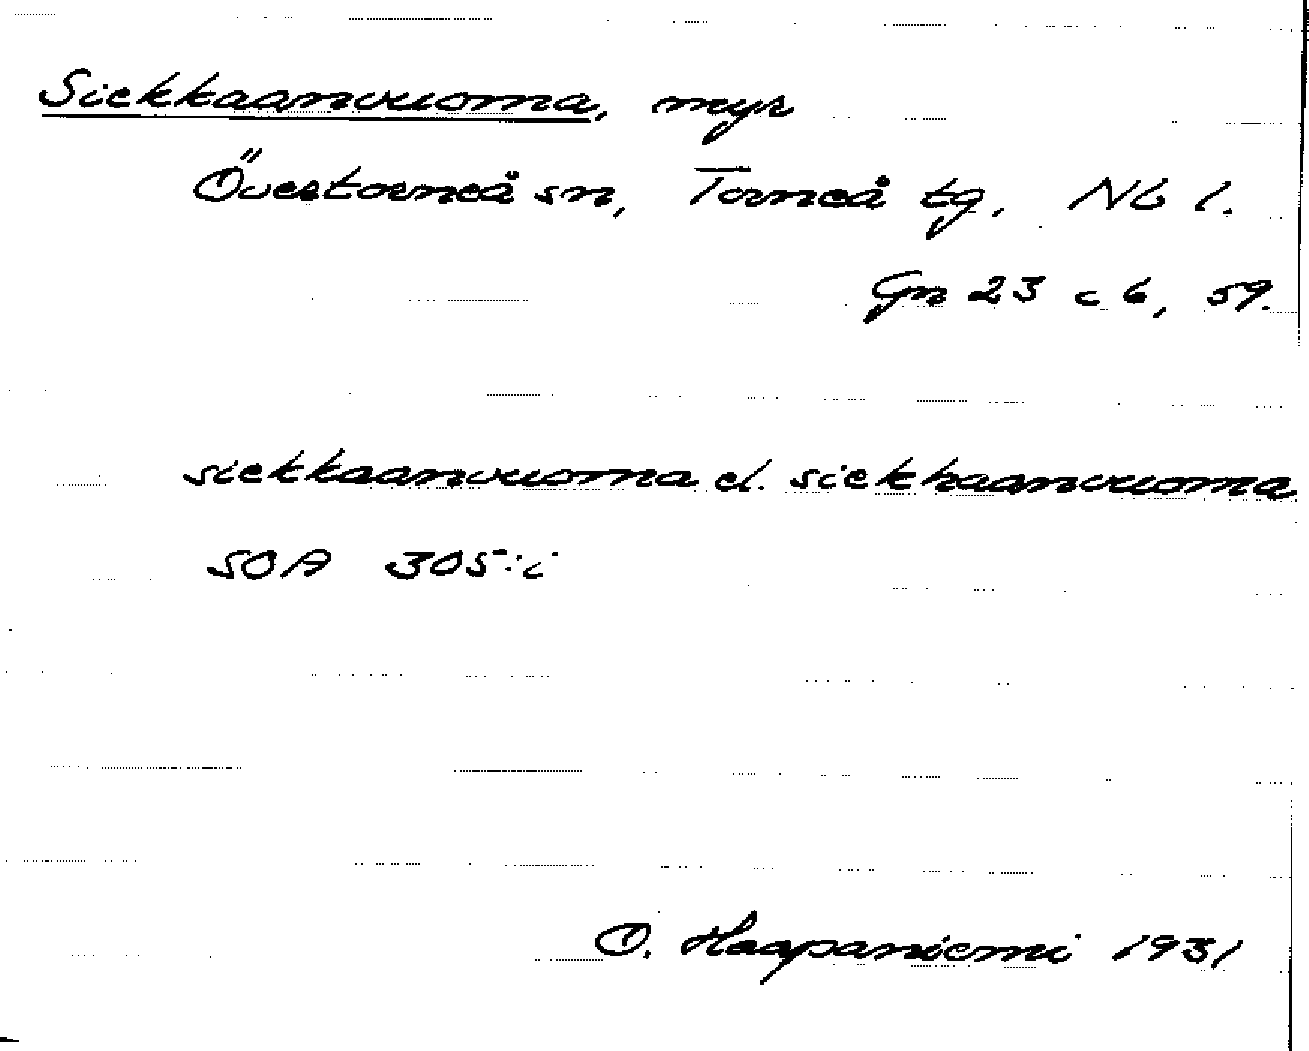 Siekkaanvuoma, myr
Övertorneå sn, Torneå tg, Nb l.
Gn 23 c 6, 59.
siekkaanvuoma el. siekkaanvuoma
SOA 305:i
O. Haapaniemi 1931